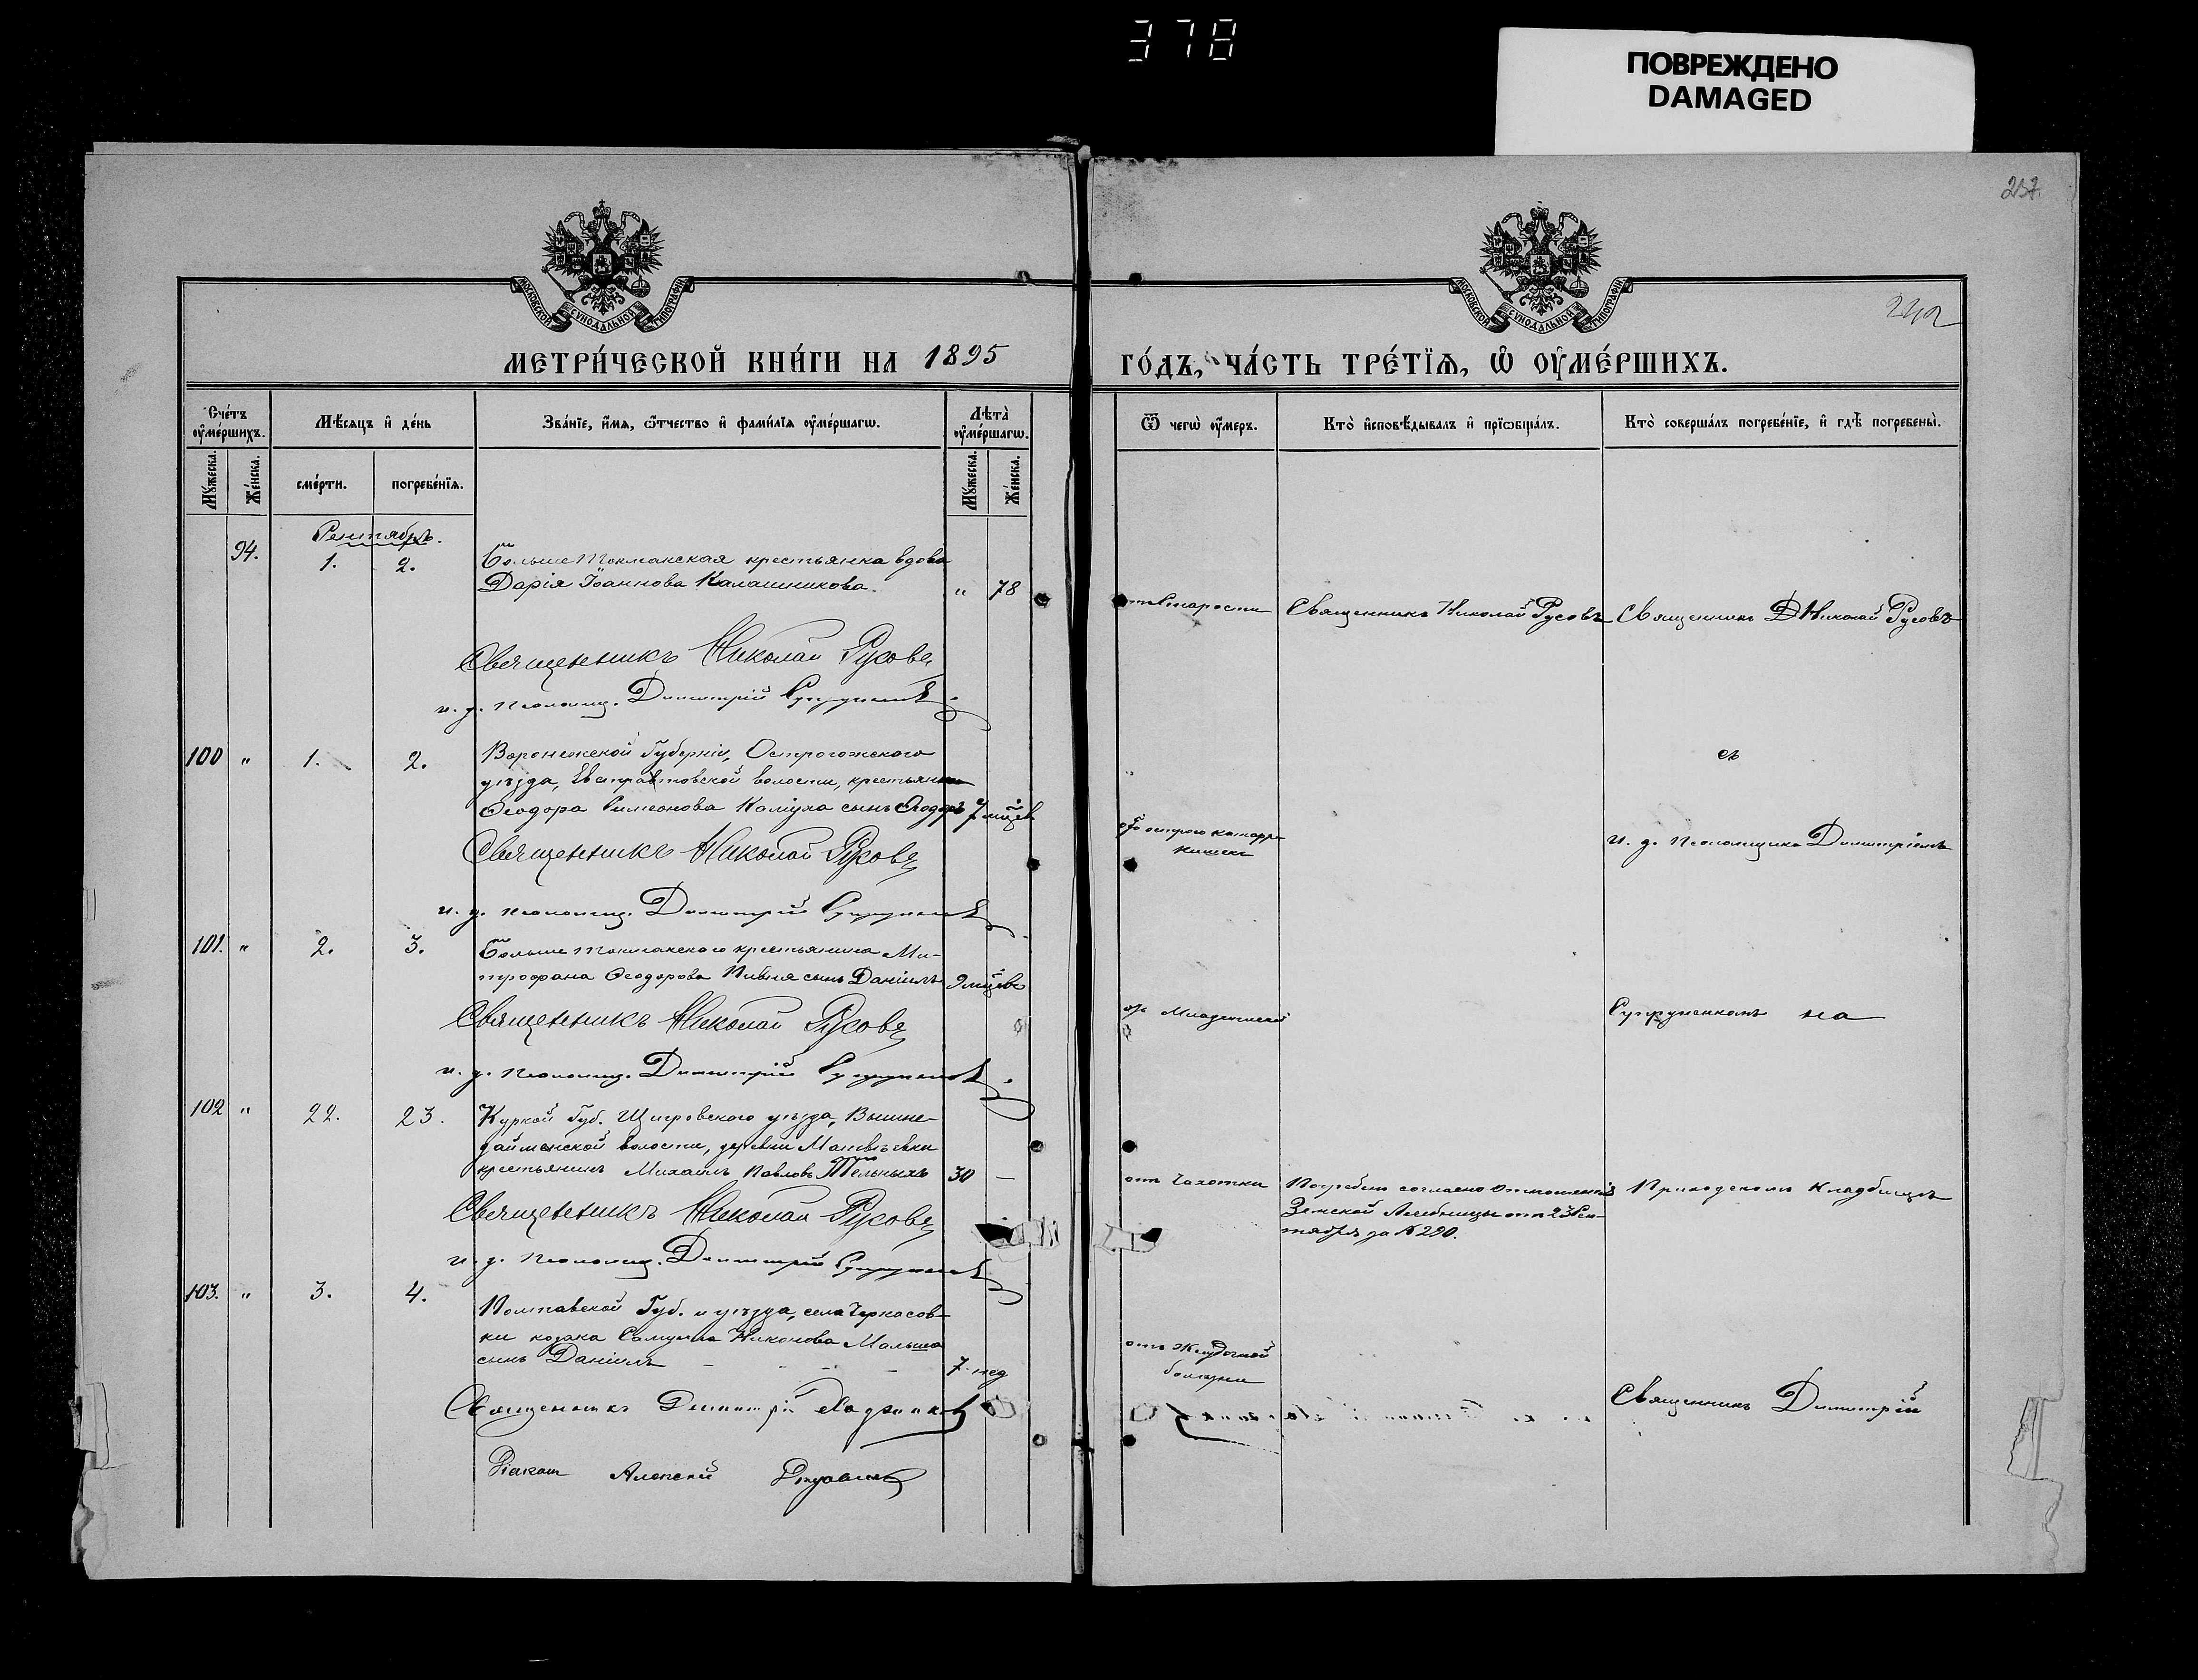 378
ПОВРЕЖДЕНО
DAMAGED
237.
242
МОСКОВСКОЙ СѴНОДАЛЬНОЙ ТИПОГРАФІИ
МОСКОВСКОЙ СѴНОДАЛЬНОЙ ТИПОГРАФІИ
МЕТРИ́ЧЕСКОЙ КНИ́ГИ НА 1895
ГО́ДЪ, ЧА́СТЬ ТРЕ́ТЇѦ, Ѡ҆ ОУ҆МЕ́РШИХЪ.
Сче́тъ оу҆ме́ршихъ.
Мꙋ́жеска.
Же́нска.
Мѣ́сѧцъ и҆ де́нь
сме́рти.
погребе́нїѧ.
Зва́нїе, и҆́мѧ, ѻ҆́тчество и҆ фами́лїѧ оу҆ме́ршагѡ.
Лѣта̀ оу҆ме́ршагѡ.
Мꙋ́жеска.
Же́нска.
Ѿ чегѡ̀ оу҆́меръ.
Кто̀ и҆сповѣ́дывалъ и҆ прїѡбща́лъ.
Кто̀ соверша́лъ погребе́нїе, и҆ гдѣ̀ погребены̀.
Сентябрь.
94. 1. 2. Больше Токмакская крестьянка вдова
Дарія Іоаннова Калашникова. " 78
отъ Старости Священникъ Николай Русовъ Священникъ Николай Русовъ
Священникъ Николай Русовъ
и. д. псаломщ. Димитрій Супруненко
100 " 1. 2. Воронежской Губерніи, Острогожскаго
уѣзда, Евстратовской волости, крестьянина
Ѳеодора Симеонова сынъ Ѳеодоръ 7 мцѣв
отъ остраго катарра
кишекъ
съ
и. д. Псаломщика Димитріемъ
Священникъ Николай Русовъ
и. д. псаломщ. Димитрій Супруненко
101. " 2. 3. Больше Токмакскаго крестьянина Ми-
трофана Ѳеодорова Пивня сынъ Даніилъ 9 мцѣвъ
отъ Младенческой
Супруненкомъ на
Священникъ Николай Русовъ
и. д. псаломщ. Димитрій Супруненко
102 " 22. 23. Курской Губ. Щигровскаго уѣзда, Вышне-
дайменской волости, деревни Матвѣевки
крестьянинъ Михаилъ Павловъ Тельныхъ 30 —
отъ Чахотки
Погребенъ согласно отношенія
Земской Лечебницы отъ 23 Сен-
тября за № 290.
Приходскомъ Кладбищѣ
Священникъ Николай Русовъ
и. д. псаломщ. Димитрій Супруненко
103. " 3. 4. Полтавской Губ. и уѣзда, села Черкасов-
ки козака Самуила Никонова Малыша
сынъ Даніилъ 7. нед
отъ Желудочной
болѣзни
Священникъ Димитрій
Священникъ Димитрій
Діаконъ Алексій